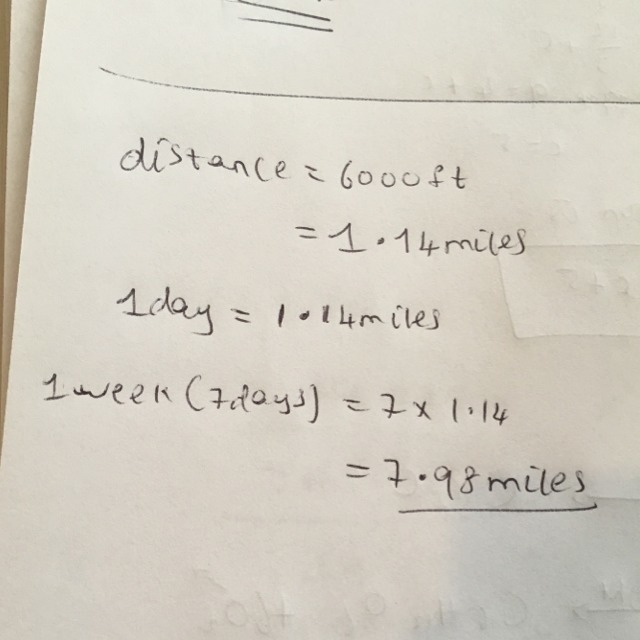 distance = 6000ft
= 1.14miles
1day = 1.14miles
1week (7days) = 7 x 1.14
= 7.98miles